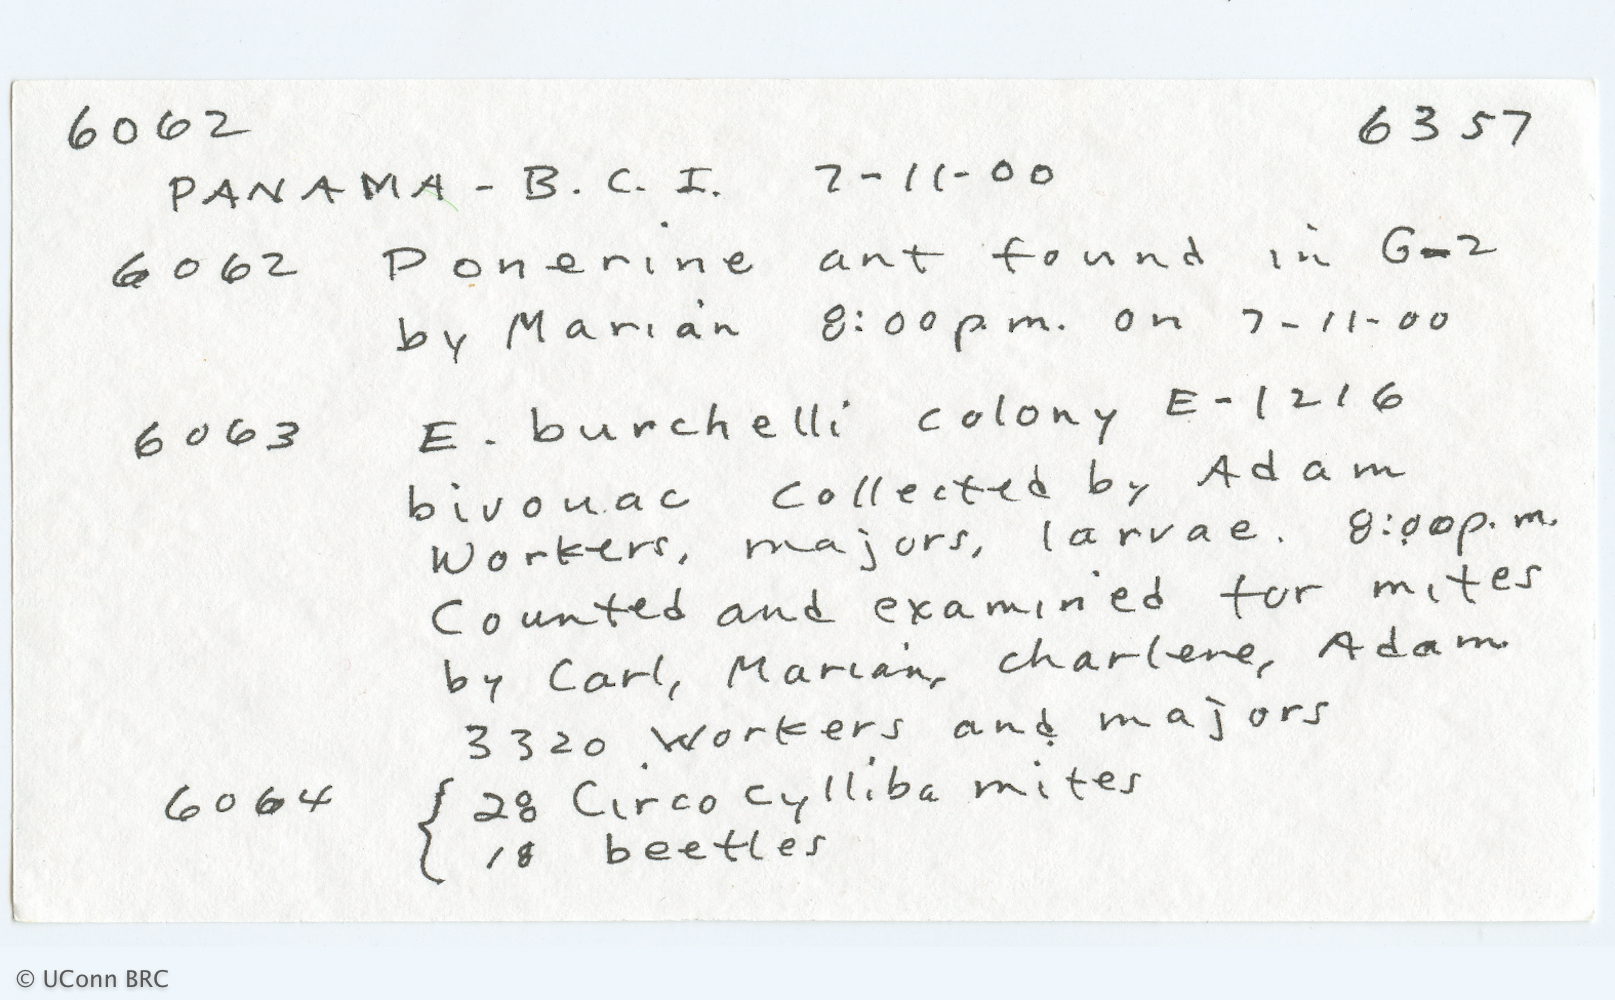 6062 6357
PANAMA - B.C.I. 7-11-00
6062 Ponerine ant found in G-2
by Marian 8:00p.m. on 7-11-00
6063 E. burchelli colony E-1216
bivouac collected by Adam
Workers, majors, larvae. 8:00p.m.
Counted and examined for mites
by Carl, Marian, Charlene, Adam
3320 Workers and majors
6064 { 28 Circocylliba mites
18 beetles
© UConn BRC